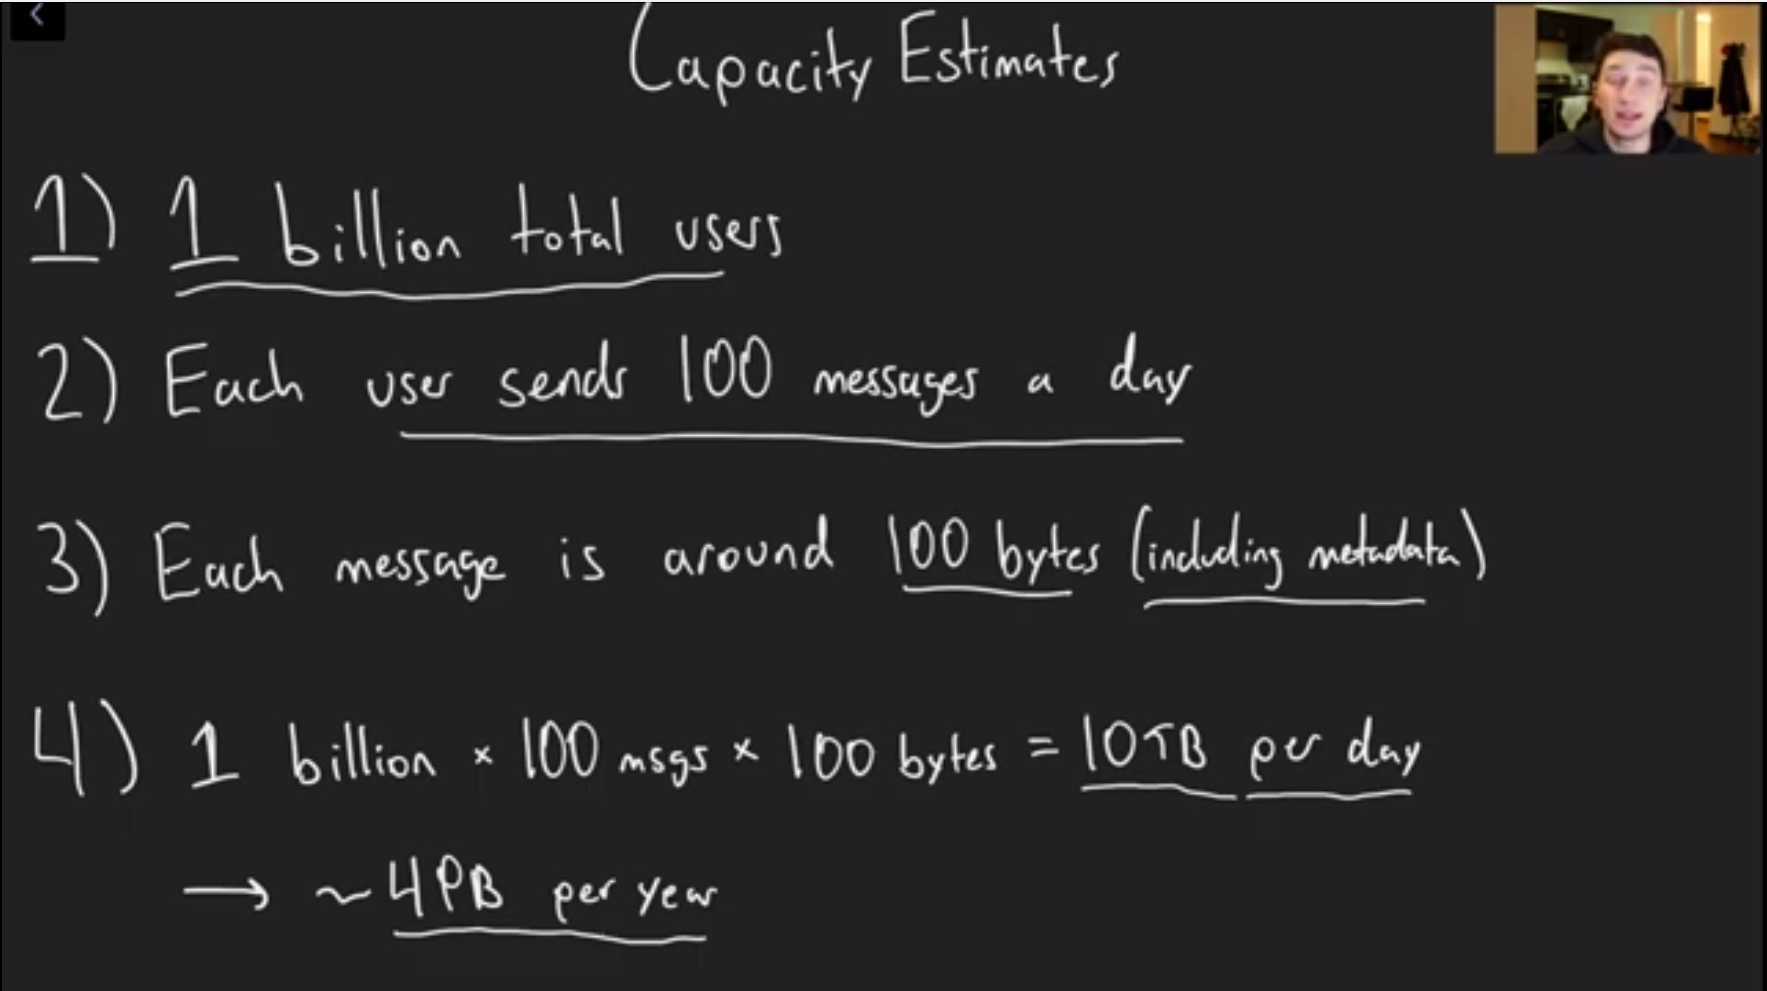 Capacity Estimates
1) 1 billion total users
2) Each user sends 100 messages a day
3) Each message is around 100 bytes (including metadata)
4) 1 billion × 100 msgs × 100 bytes = 10TB per day
→ ~4PB per year